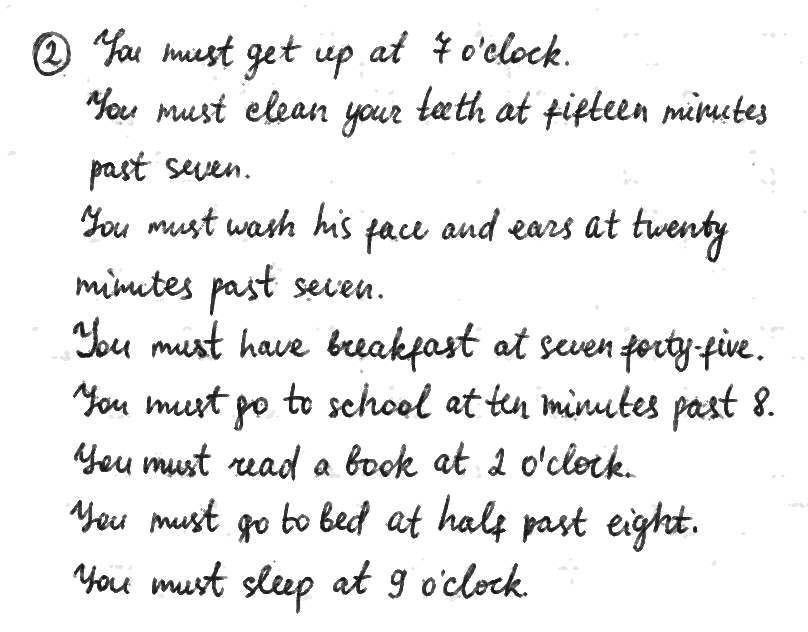 ② You must get up at 7 o'clock.
You must clean your teeth at fifteen minutes
past seven.
You must wash his face and ears at twenty
minutes past seven.
You must have breakfast at seven forty-five.
You must go to school at ten minutes past 8.
You must read a book at 2 o'clock.
You must go to bed at half past eight.
You must sleep at 9 o'clock.